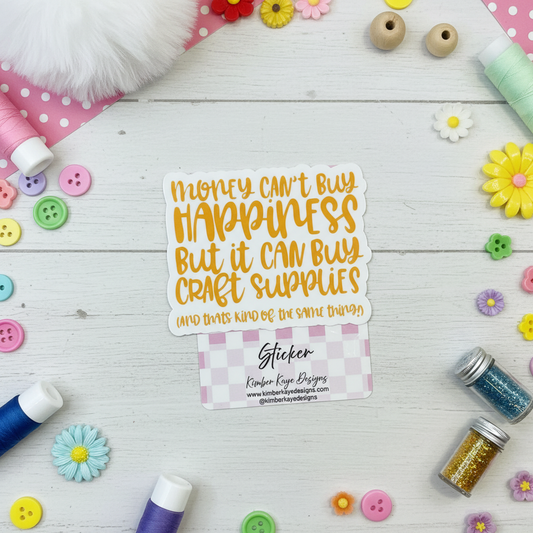 MONEY CAN'T BUY
HAPPINESS
BUT it CAN BUY
CRAft SUPPLiES
(AND THATS KIND OF THE SAME THING!)
Sticker
Kimber Kaye Designs
www.kimberkayedesigns.com
@kimberkayedesigns